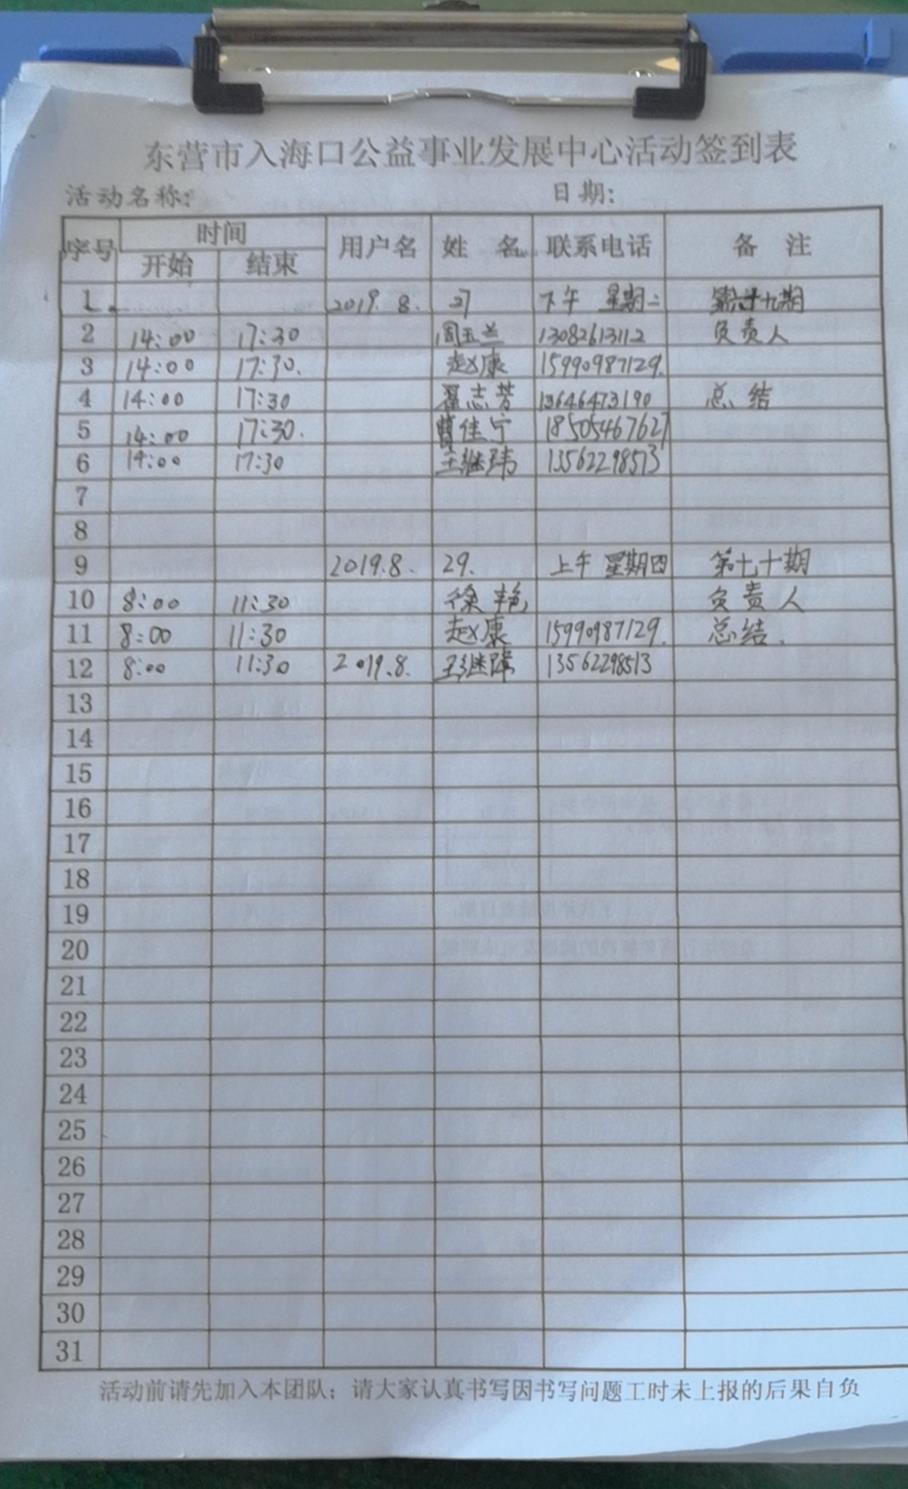 东营市入海口公益事业发展中心活动签到表
活动名称: 日期:
序号 时间 用户名 姓 名 联系电话 备 注
开始 结束
1 2019.8. 27 下午 星期二 第六十九期
2 14:00 17:30 周玉兰 13082613112 负责人
3 14:00 17:30. 赵康 15990987129.
4 14:00 17:30 翟志芳 13646473190 总结
5 14:00 17:30. 曹佳宁 18505467627
6 14:00 17:30 王继玮 13562298513
7
8
9 2019.8. 29. 上午 星期四 第七十期
10 8:00 11:30 徐艳 负责人
11 8:00 11:30 赵康 15990987129. 总结.
12 8:00 11:30 2019.8. 13562298513
13
14
15
16
17
18
19
20
21
22
23
24
25
26
27
28
29
30
31
活动前请先加入本团队;请大家认真书写因书写问题工时未上报的后果自负